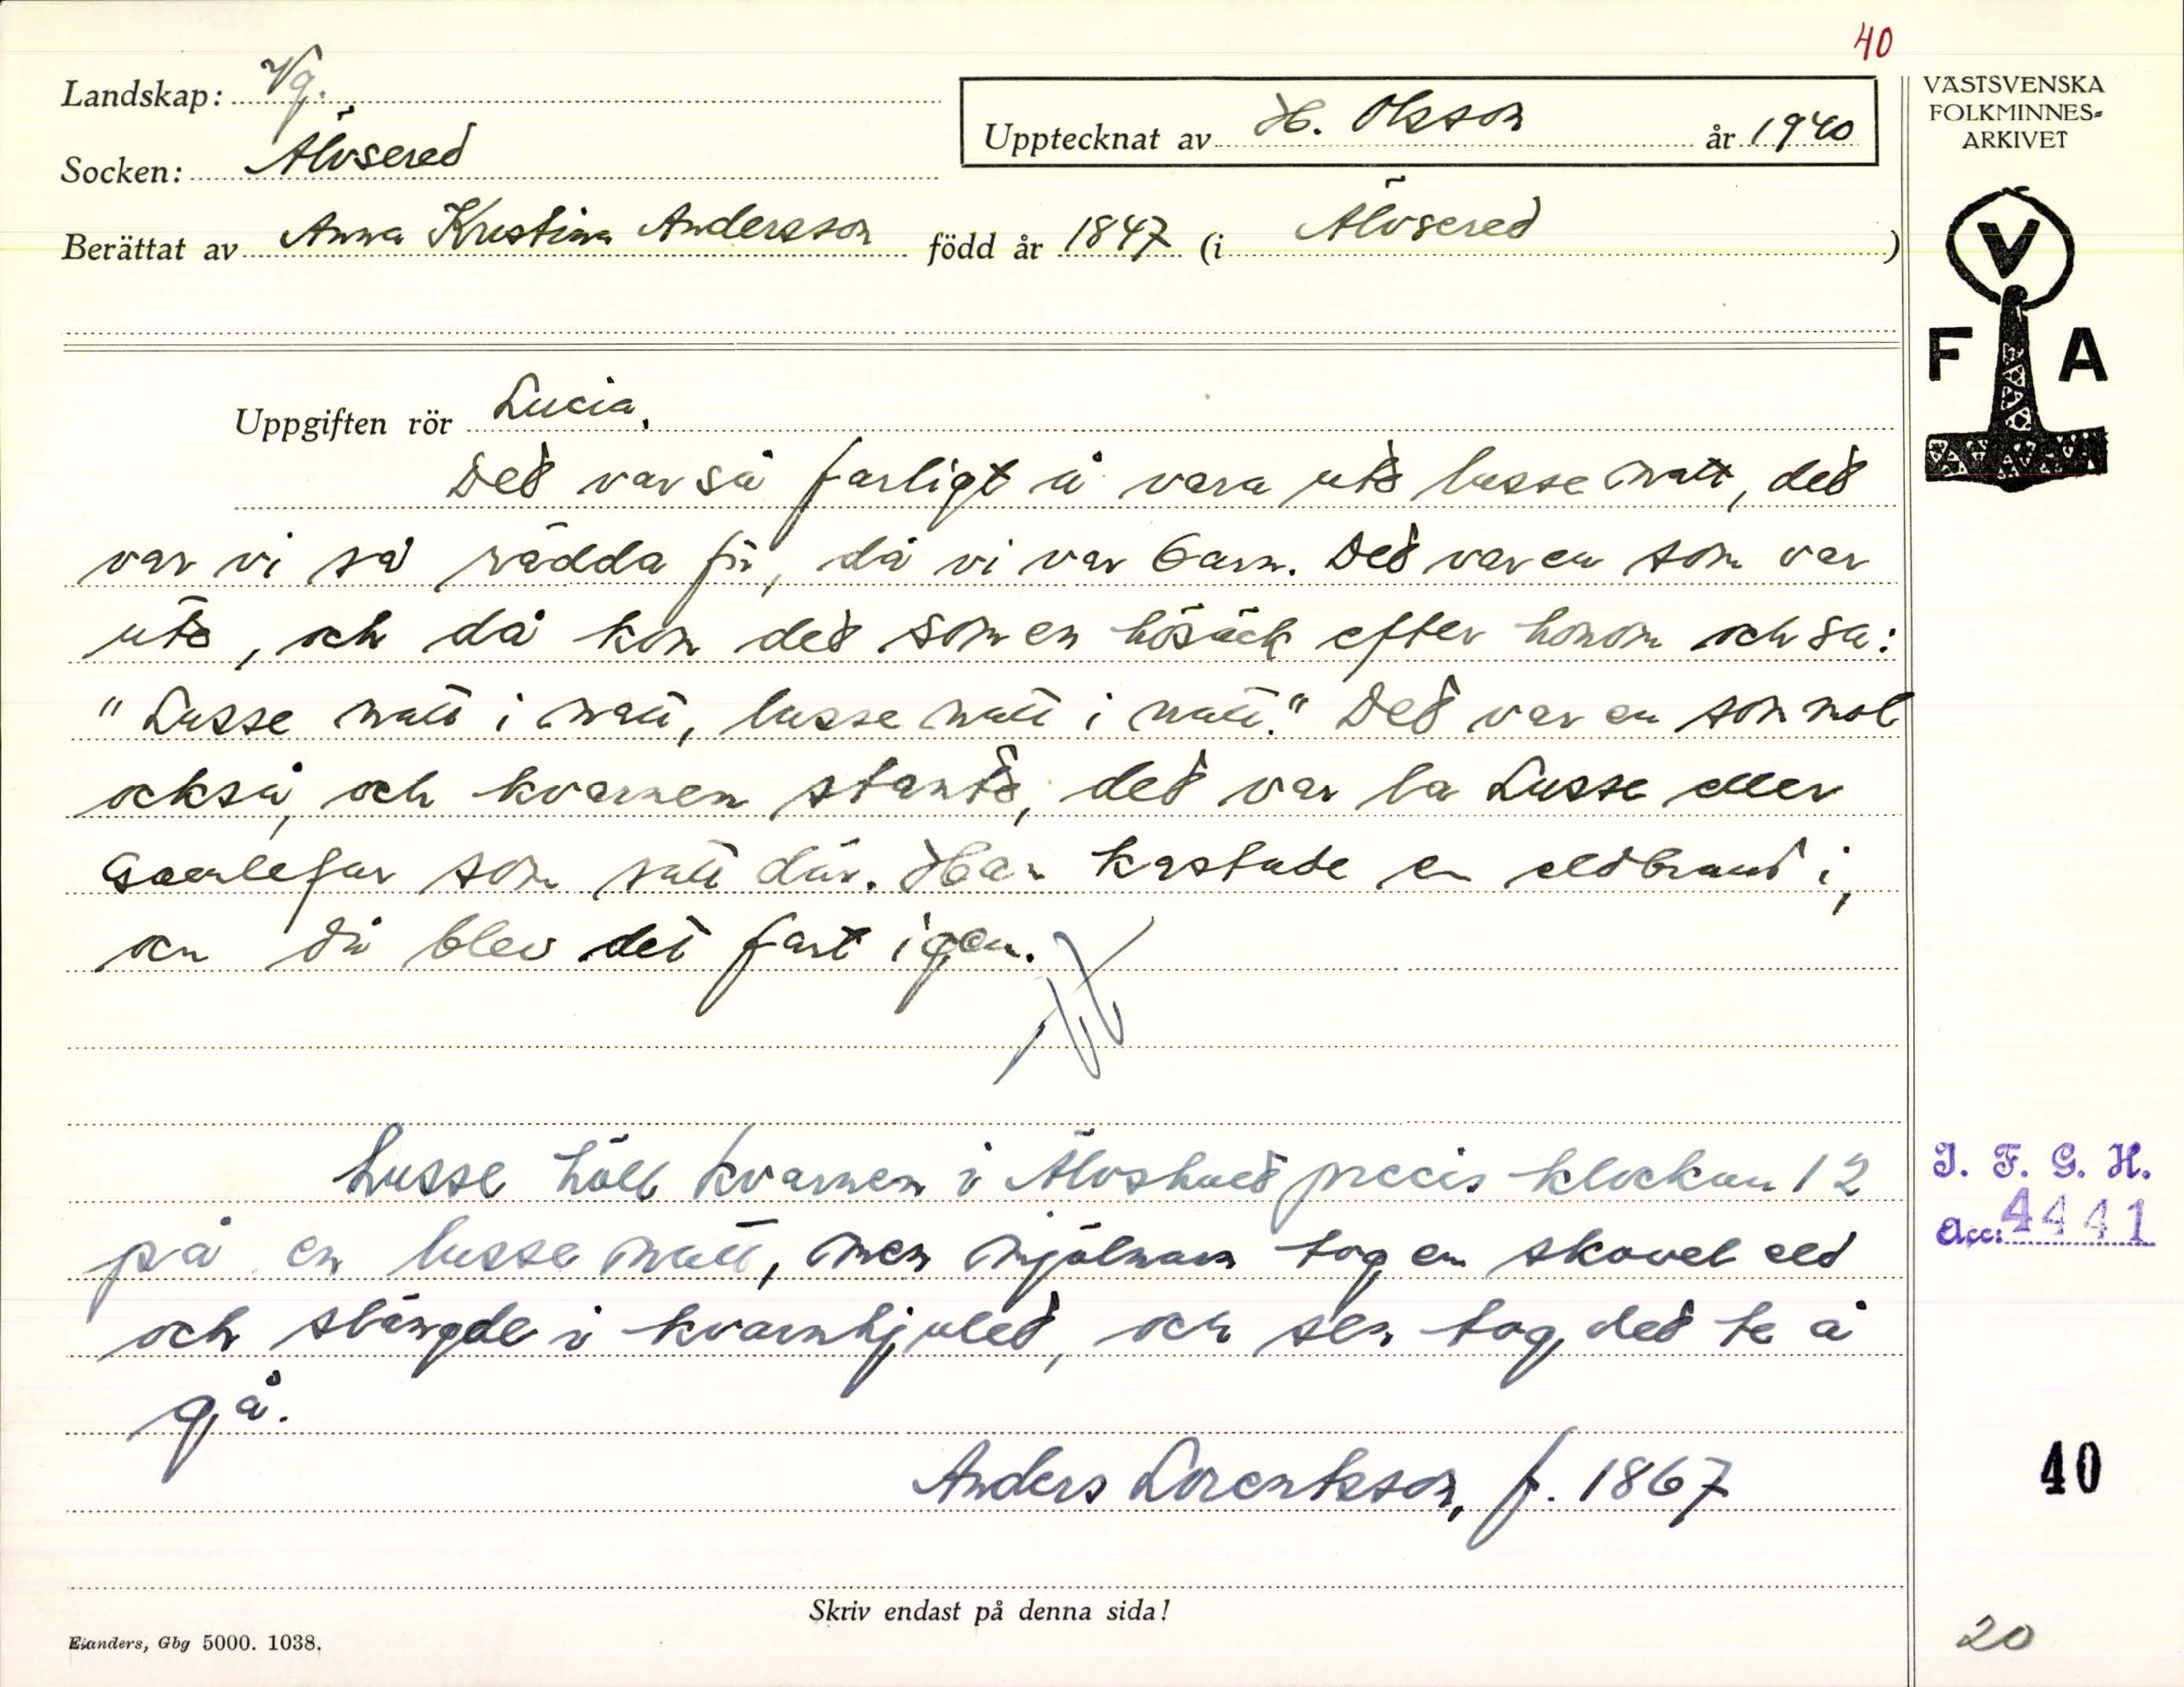 40
Landskap: Vg.
Socken: Älvsered
Upptecknat av H. Olsson år 1940
Berättat av Anna Kristina Andersson född år 1847 (i Älvsered)
VÄSTSVENSKA
FOLKMINNES-
ARKIVET
V
F A
Uppgiften rör Lucia.
Ded var så farligt å vara ute lusse natt, ded
var vi så rädda för, då vi var barn. Ded var en som var
ute, och då kom ded som en hösäck efter honom och sa:
"Lusse natt i natt, lusse natt i natt." Ded var en som mol
också, och kvarnen stanna, ded var la Lusse eller
Gamlefar som satt där. Han kastade en eldbrand i,
och då blev det fart igen.
Lusse höll kvarnen i Älvshult precis klockan 12
på en lusse natt, men mjölnarn tog en skovel eld
och slängde i kvarnhjuled, och sen tog ded te å
gå.
Anders Lorentsson, f. 1867
I. F. G. H.
Acc: 4441
40
Skriv endast på denna sida!
Elanders, Gbg 5000. 1038.
20